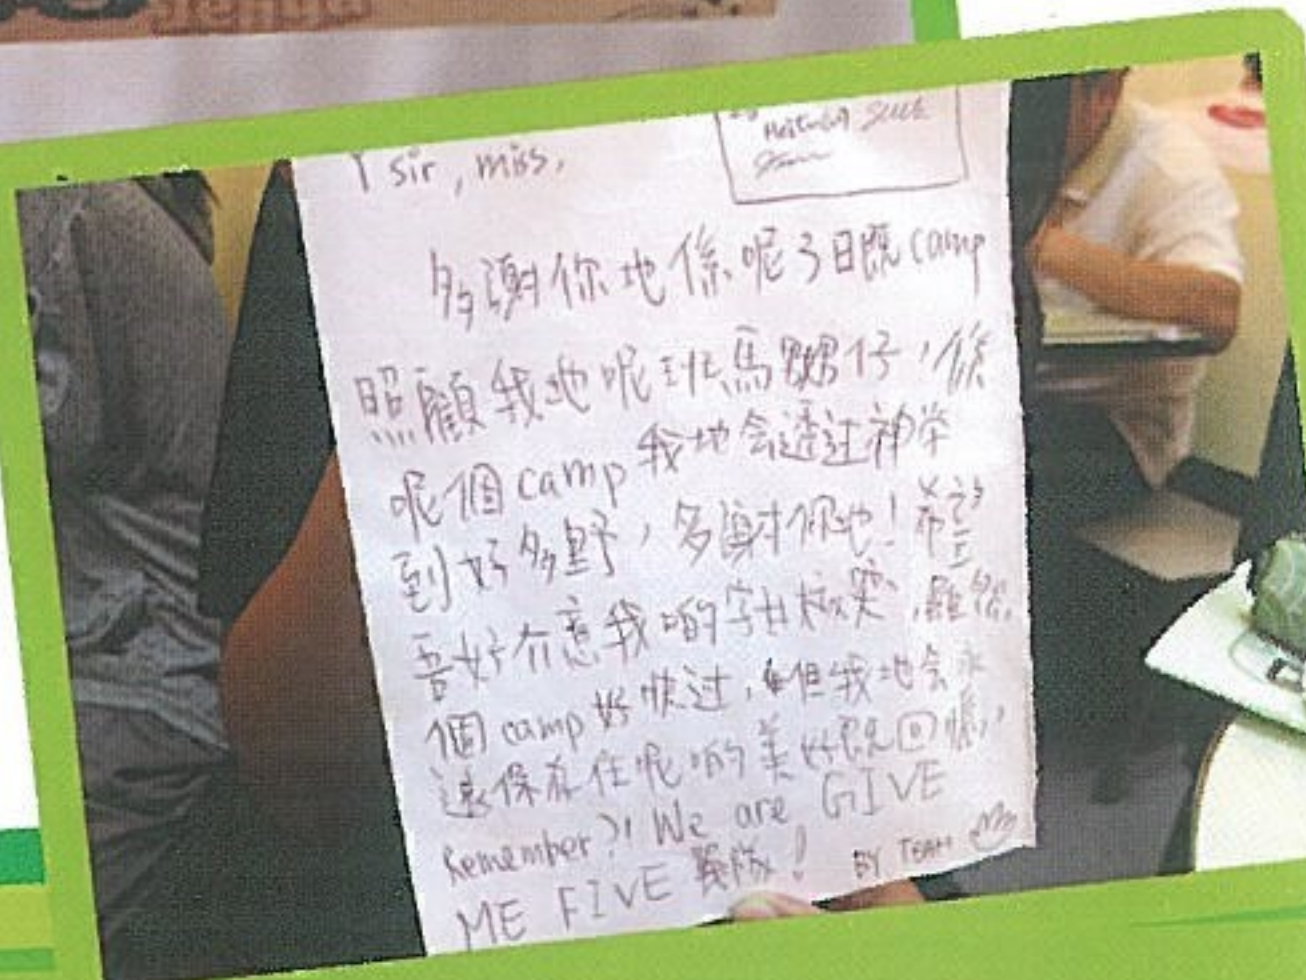 Y sir, miss,
多謝你地係呢3日既camp
照顧我地呢班馬騮仔，係
呢個camp我地会透过神学
到好多野，多謝你地！希望
吾好介意我啲字太核突，雖然
個camp好快过，但我地会永
遠保存住呢啲美好既回憶，
Remember?! We are GIVE
ME FIVE 戰隊！ BY TEAM